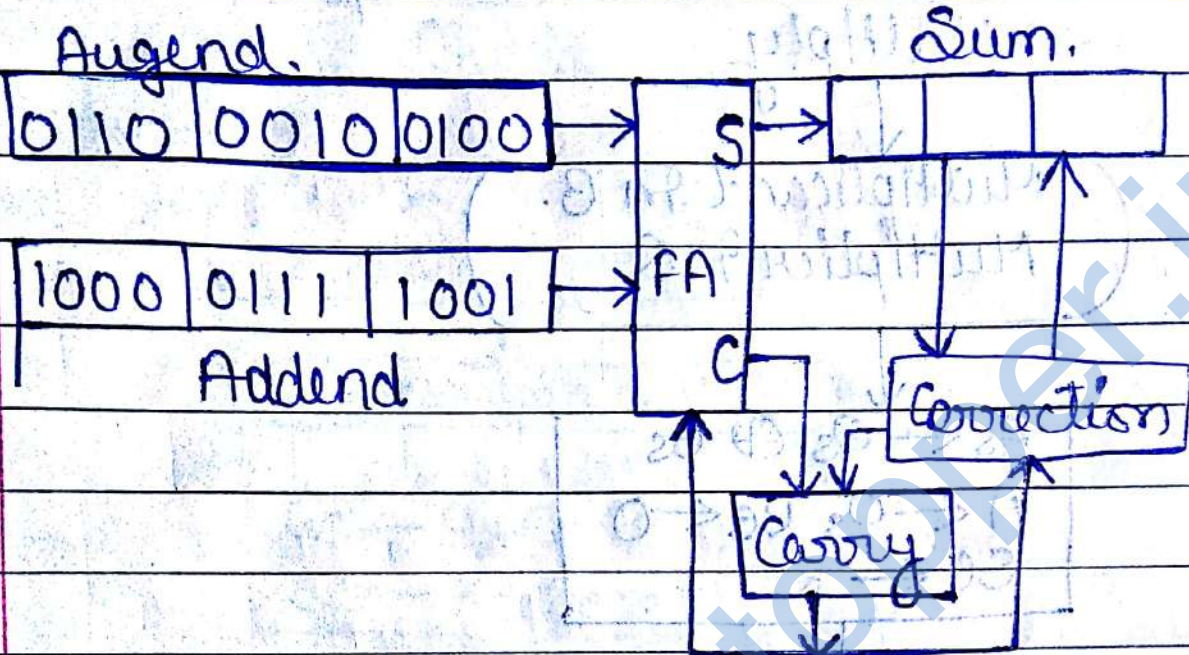 Augend. Sum.
0110 0010 0100
S
1000 0111 1001
FA
Addend
C
Correction
Carry